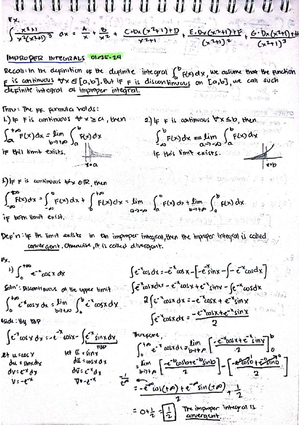 Ex.
∫ x³+1 / x²(x²+1)³ dx = A/x + B/x² + C·Dx(x²+1)+D / x²+1 + E·Dx(x²+1)+F / (x²+1)² + G·Dx(x²+1)+H / (x²+1)³
IMPROPER INTEGRALS
Recall: In the definition of the definite integral ∫_a^b F(x)dx, we assume that the function
F is continuous ∀x∈[a,b], but if F is discontinuous on [a,b], we call such
definite integral as improper integral.
Thm: The ff. formula holds:
1.) If F is continuous ∀ x ≥ a, then 2.) If F is continuous ∀ x ≤ b, then
∫_a^{+∞} F(x)dx = lim_{b→+∞} ∫_a^b F(x)dx ∫_{-∞}^b F(x)dx = lim_{a→-∞} ∫_a^b F(x)dx
if this limit exists. if this limit exists.
x=a x=b
3.) If F is continuous ∀x∈ℝ, then
∫_{-∞}^{+∞} F(x)dx = ∫_{-∞}^0 F(x)dx + ∫_0^{+∞} F(x)dx = lim_{a→-∞} ∫_a^0 F(x)dx + lim_{b→+∞} ∫_0^b F(x)dx
if both limit exist.
Def'n: If the limit exists in an improper integral, then the improper integral is called
convergent. Otherwise, it is called divergent.
Ex.
1.) ∫_0^{+∞} e^{-x} cosx dx
Soln: Discontinuous at the upper limit
∫_0^{+∞} e^{-x} cosx dx = lim_{b→+∞} ∫_0^b e^{-x} cosx dx
Side: By IBP
∫e^{-x} cosx dx = -e^{-x} cosx - ∫e^{-x} sinx dx
IBP
let u = cosx let ū = sinx
dv = e^{-x} dv̄ = e^{-x} dx
v = -e^{-x} v̄ = -e^{-x}
∫e^{-x} cosx dx = -e^{-x} cosx - [-e^{-x} sinx - ∫-e^{-x} cosx dx]
∫e^{-x} cosx dx = -e^{-x} cosx + e^{-x} sinx - ∫e^{-x} cosx dx
2∫e^{-x} cosx dx = -e^{-x} cosx + e^{-x} sinx
∫e^{-x} cosx dx = -e^{-x} cosx + e^{-x} sinx / 2
Therefore,
∫_0^{+∞} e^{-x} cosx dx = lim_{b→+∞} [-e^{-x} cosx + e^{-x} sinx / 2]_0^b
= lim_{b→+∞} [-e^{-b} cosb + e^{-b} sinb / 2] - [-e^0 cos0 + e^0 sin0 / 2]
= -e^{-∞} cos(+∞) + e^{-∞} sin(+∞) / 2 + 1/2
= 0 + 1/2 = 1/2 The improper integral is
convergent.